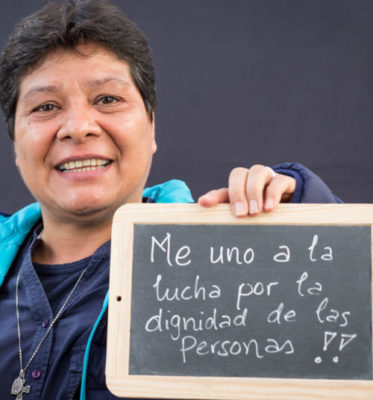 Me uno a la
lucha por la
dignidad de las
personas !!